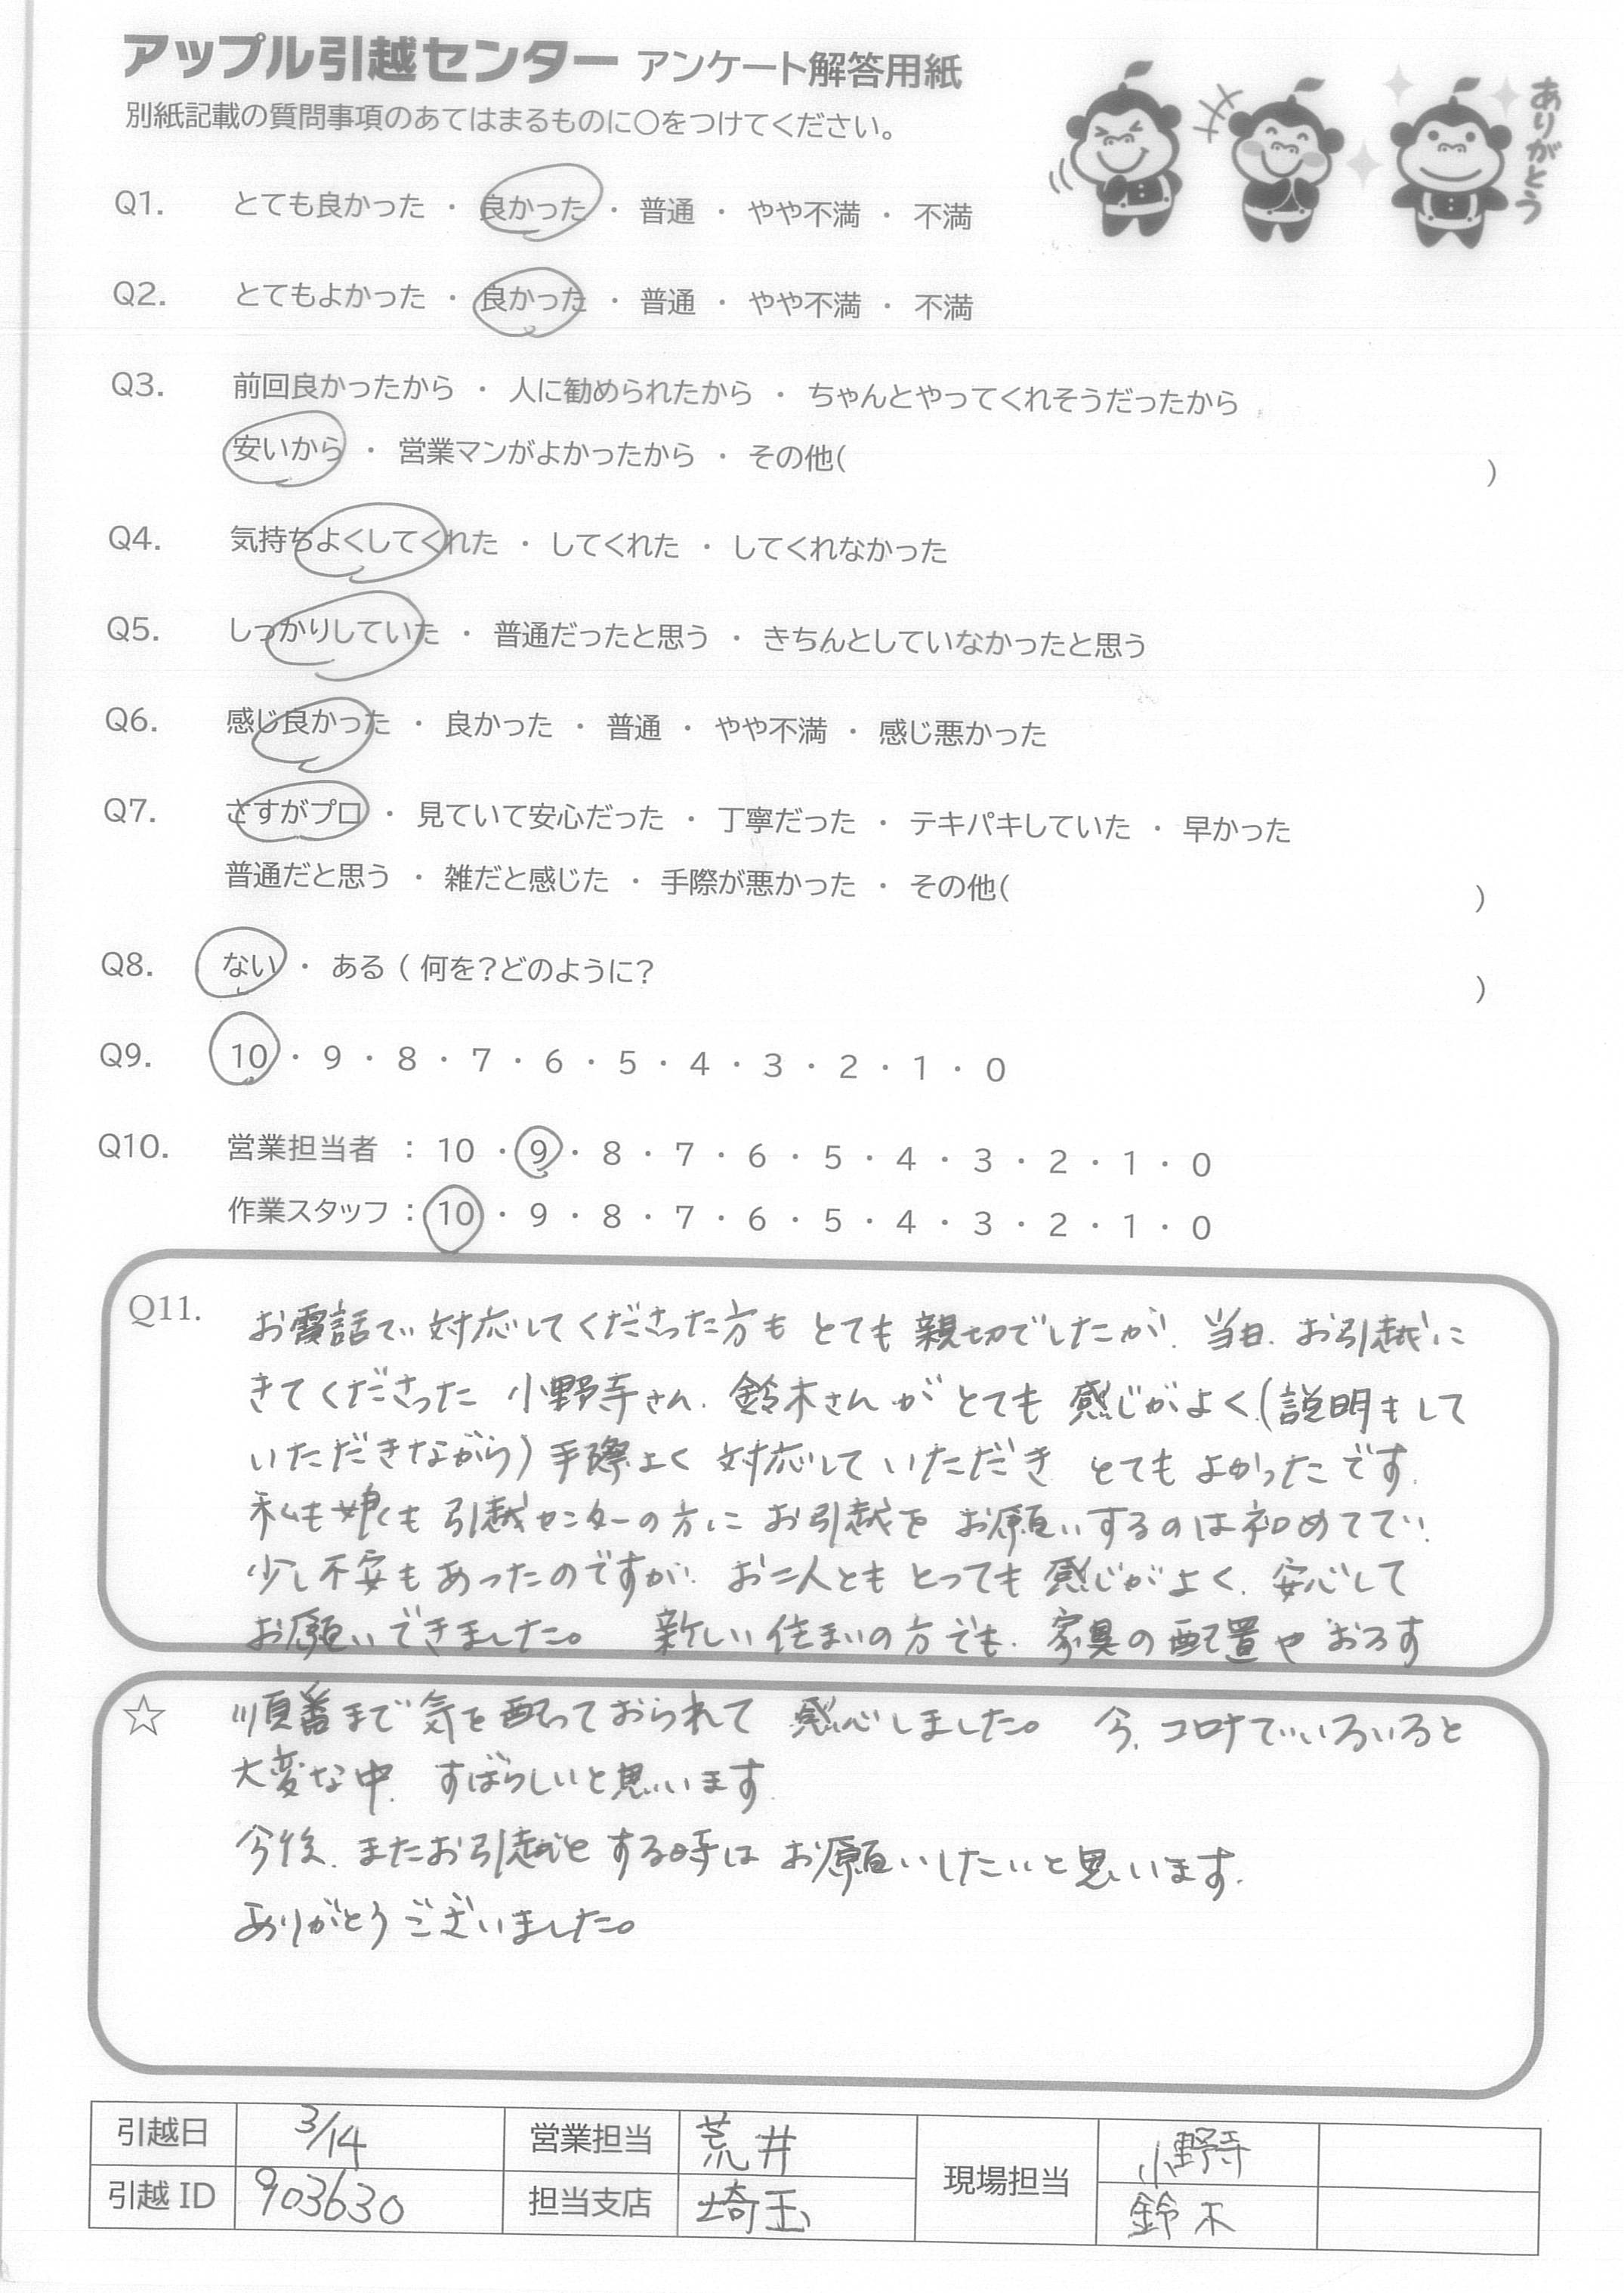 アップル引越センター アンケート解答用紙
別紙記載の質問事項のあてはまるものに○をつけてください。
ありがとう
Q1. とても良かった ・ 良かった ・ 普通 ・ やや不満 ・ 不満
Q2. とてもよかった ・ 良かった ・ 普通 ・ やや不満 ・ 不満
Q3. 前回良かったから ・ 人に勧められたから ・ ちゃんとやってくれそうだったから
安いから ・ 営業マンがよかったから ・ その他( )
Q4. 気持ちよくしてくれた ・ してくれた ・ してくれなかった
Q5. しっかりしていた ・ 普通だったと思う ・ きちんとしていなかったと思う
Q6. 感じ良かった ・ 良かった ・ 普通 ・ やや不満 ・ 感じ悪かった
Q7. さすがプロ ・ 見ていて安心だった ・ 丁寧だった ・ テキパキしていた ・ 早かった
普通だと思う ・ 雑だと感じた ・ 手際が悪かった ・ その他( )
Q8. ない ・ ある ( 何を?どのように? )
Q9. 10 ・ 9 ・ 8 ・ 7 ・ 6 ・ 5 ・ 4 ・ 3 ・ 2 ・ 1 ・ 0
Q10. 営業担当者 : 10 ・ 9 ・ 8 ・ 7 ・ 6 ・ 5 ・ 4 ・ 3 ・ 2 ・ 1 ・ 0
作業スタッフ : 10 ・ 9 ・ 8 ・ 7 ・ 6 ・ 5 ・ 4 ・ 3 ・ 2 ・ 1 ・ 0
Q11. お電話で対応してくださった方も とても 親切でしたが、当日、お引越に
きてくださった 小野寺さん、鈴木さんが とても 感じがよく、(説明もして
いただきながら)手際よく 対応して いただき とても よかったです。
私も娘も 引越センターの方に お引越を お願いするのは初めてで、
少し不安もあったのですが、お二人とも とっても 感じがよく、安心して
お願いできました。 新しい住まいの方でも、家具の配置や おろす
☆ 順番まで気を配っておられて 感心しました。 今、コロナでいろいろと
大変な中、すばらしいと思います。
今後、またお引越をする時は お願いしたいと思います。
ありがとうございました。
引越日 3/14 営業担当 荒井 現場担当 小野寺
引越ID 903630 担当支店 埼玉 鈴木